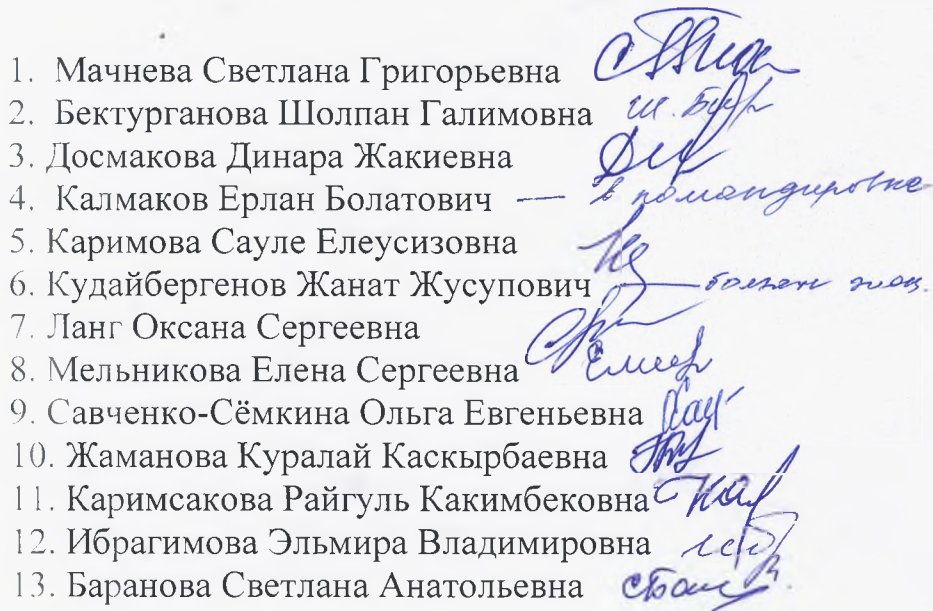 1. Мачнева Светлана Григорьевна
2. Бектурганова Шолпан Галимовна Ш. Бект
3. Досмакова Динара Жакиевна
4. Калмаков Ерлан Болатович — в командировке
5. Каримова Сауле Елеусизовна
6. Кудайбергенов Жанат Жусупович —
7. Ланг Оксана Сергеевна
8. Мельникова Елена Сергеевна
9. Савченко-Сёмкина Ольга Евгеньевна
10. Жаманова Куралай Каскырбаевна
11. Каримсакова Райгуль Какимбековна
12. Ибрагимова Эльмира Владимировна
13. Баранова Светлана Анатольевна